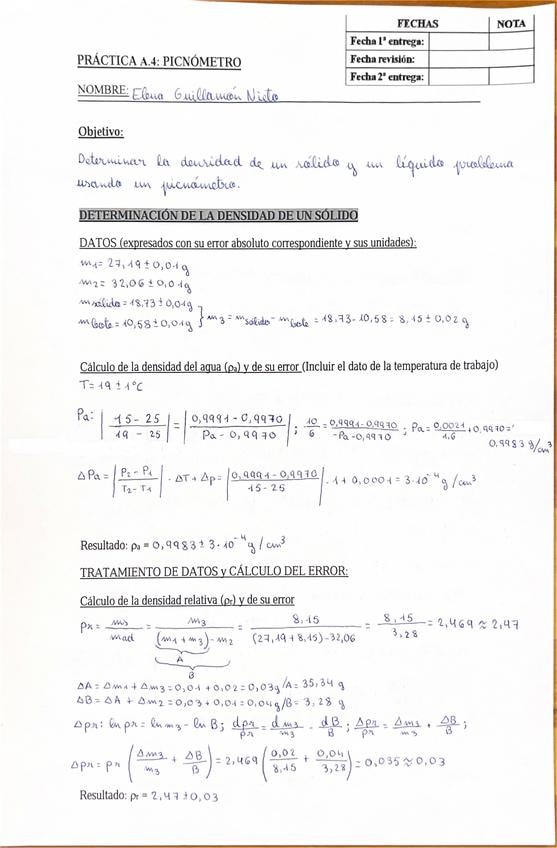 FECHAS NOTA
Fecha 1ª entrega:
Fecha revisión:
Fecha 2ª entrega:
PRÁCTICA A.4: PICNÓMETRO
NOMBRE: Elena Guillamón Nieto
Objetivo:
Determinar la densidad de un sólido y un líquido problema
usando un picnómetro.
DETERMINACIÓN DE LA DENSIDAD DE UN SÓLIDO
DATOS (expresados con su error absoluto correspondiente y sus unidades):
m1 = 27,19 ± 0,01 g
m2 = 32,06 ± 0,01 g
m sólido = 18,73 ± 0,01 g
m bote = 10,58 ± 0,01 g } m3 = m sólido - m bote = 18,73 - 10,58 = 8,15 ± 0,02 g
Cálculo de la densidad del agua (ρa) y de su error (Incluir el dato de la temperatura de trabajo)
T = 19 ± 1°C
Pa: | 15 - 25 / 19 - 25 | = | 0,9991 - 0,9970 / Pa - 0,9970 | ; 10/6 = 0,9991 - 0,9970 / -Pa - 0,9970 ; Pa = 0,0021/1,6 + 0,9970 =
0,9983 g/cm³
ΔPa = | P2 - P1 / T2 - T1 | · ΔT + Δp = | 0,9991 - 0,9970 / 15 - 25 | · 1 + 0,0001 = 3·10⁻⁴ g/cm³
Resultado: ρa = 0,9983 ± 3·10⁻⁴ g/cm³
TRATAMIENTO DE DATOS y CÁLCULO DEL ERROR:
Cálculo de la densidad relativa (ρr) y de su error
ρr = ms / mad = m3 / (m1 + m3) - m2 = 8,15 / (27,19 + 8,15) - 32,06 = 8,15 / 3,28 = 2,469 ≈ 2,47
A
B
ΔA = Δm1 + Δm3 = 0,01 + 0,02 = 0,03 g / A = 35,34 g
ΔB = ΔA + Δm2 = 0,03 + 0,01 = 0,04 g / B = 3,28 g
Δρr: ln ρr = ln m3 - ln B ; dρr/ρr = dm3/m3 - dB/B ; Δρr/ρr = Δm3/m3 + ΔB/B ;
Δρr = ρr ( Δm3/m3 + ΔB/B ) = 2,469 ( 0,02/8,15 + 0,04/3,28 ) = 0,035 ≈ 0,03
Resultado: ρr = 2,47 ± 0,03